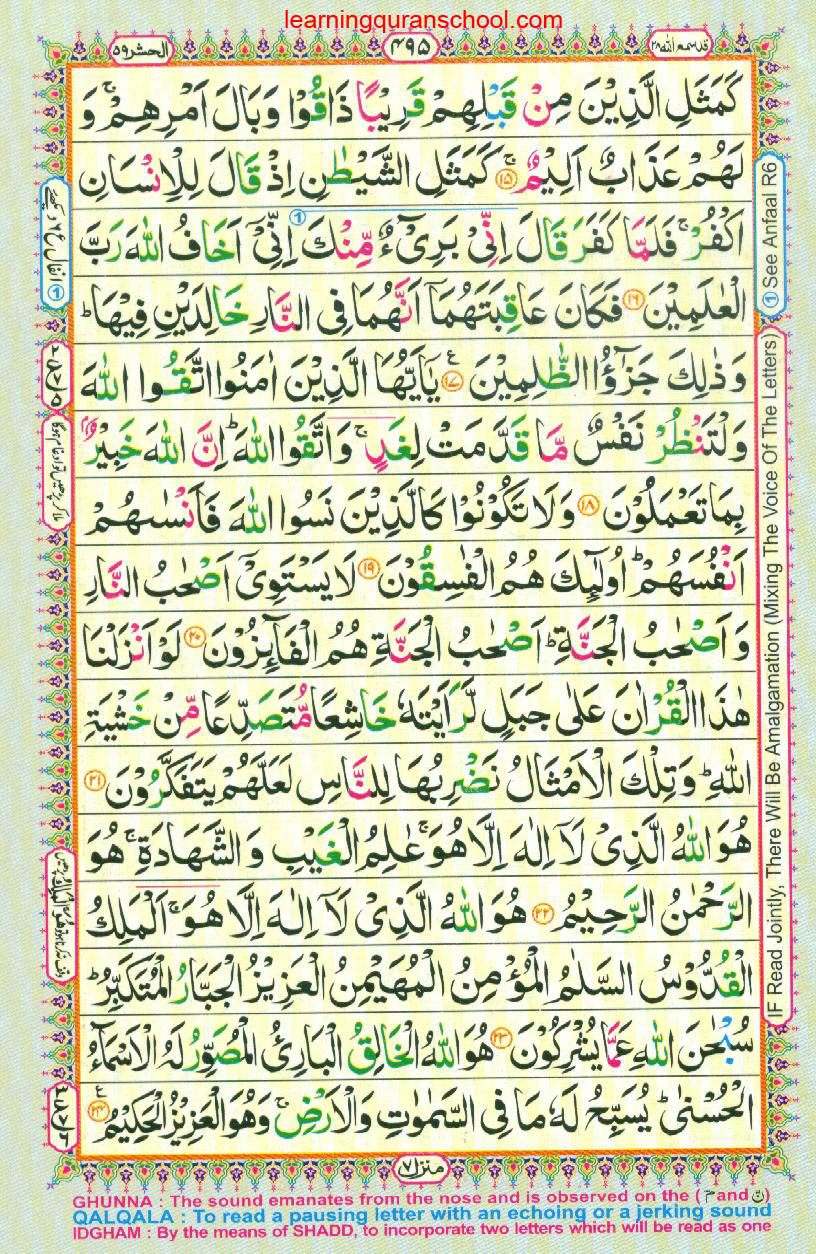 learningquranschool.com
قد سمع الله ٢٨
٤٩٥
الحشر ٥٩
كَمَثَلِ الَّذِيْنَ مِنْ قَبْلِهِمْ قَرِيْبًا ذَاقُوْا وَبَالَ اَمْرِهِمْ ۚ وَ
لَهُمْ عَذَابٌ اَلِيْمٌ ۚ ﴿١٥﴾ كَمَثَلِ الشَّيْطٰنِ اِذْ قَالَ لِلْاِنْسَانِ
اكْفُرْ ۚ فَلَمَّا كَفَرَ قَالَ اِنِّيْ بَرِيْٓءٌ مِّنْكَ اِنِّيْٓ اَخَافُ اللّٰهَ رَبَّ
الْعٰلَمِيْنَ ﴿١٦﴾ فَكَانَ عَاقِبَتَهُمَآ اَنَّهُمَا فِي النَّارِ خَالِدَيْنِ فِيْهَا ؕ
وَذٰلِكَ جَزٰٓؤُا الظّٰلِمِيْنَ ﴿١٧﴾ ع يٰٓاَيُّهَا الَّذِيْنَ اٰمَنُوا اتَّقُوا اللّٰهَ
وَلْتَنْظُرْ نَفْسٌ مَّا قَدَّمَتْ لِغَدٍ ۚ وَاتَّقُوا اللّٰهَ ؕ اِنَّ اللّٰهَ خَبِيْرٌۢ
بِمَا تَعْمَلُوْنَ ﴿١٨﴾ وَلَا تَكُوْنُوْا كَالَّذِيْنَ نَسُوا اللّٰهَ فَاَنْسٰىهُمْ
اَنْفُسَهُمْ ؕ اُولٰٓئِكَ هُمُ الْفٰسِقُوْنَ ﴿١٩﴾ لَا يَسْتَوِيْٓ اَصْحٰبُ النَّارِ
وَاَصْحٰبُ الْجَنَّةِ ؕ اَصْحٰبُ الْجَنَّةِ هُمُ الْفَآئِزُوْنَ ﴿٢٠﴾ لَوْ اَنْزَلْنَا
هٰذَا الْقُرْاٰنَ عَلٰى جَبَلٍ لَّرَاَيْتَهٗ خَاشِعًا مُّتَصَدِّعًا مِّنْ خَشْيَةِ
اللّٰهِ ؕ وَتِلْكَ الْاَمْثَالُ نَضْرِبُهَا لِلنَّاسِ لَعَلَّهُمْ يَتَفَكَّرُوْنَ ﴿٢١﴾
هُوَ اللّٰهُ الَّذِيْ لَآ اِلٰهَ اِلَّا هُوَ ۚ عٰلِمُ الْغَيْبِ وَالشَّهَادَةِ ۚ هُوَ
الرَّحْمٰنُ الرَّحِيْمُ ﴿٢٢﴾ هُوَ اللّٰهُ الَّذِيْ لَآ اِلٰهَ اِلَّا هُوَ ۚ اَلْمَلِكُ
الْقُدُّوْسُ السَّلٰمُ الْمُؤْمِنُ الْمُهَيْمِنُ الْعَزِيْزُ الْجَبَّارُ الْمُتَكَبِّرُ ؕ
سُبْحٰنَ اللّٰهِ عَمَّا يُشْرِكُوْنَ ﴿٢٣﴾ هُوَ اللّٰهُ الْخَالِقُ الْبَارِئُ الْمُصَوِّرُ لَهُ الْاَسْمَآءُ
الْحُسْنٰى ؕ يُسَبِّحُ لَهٗ مَا فِي السَّمٰوٰتِ وَالْاَرْضِ ۚ وَهُوَ الْعَزِيْزُ الْحَكِيْمُ ﴿٢٤﴾ ع
① See Anfaal R6
IF Read Jointly, There Will Be Amalgamation (Mixing The Voice Of The Letters)
منزل ٧
GHUNNA : The sound emanates from the nose and is observed on the (نّ and مّ)
QALQALA : To read a pausing letter with an echoing or a jerking sound
IDGHAM : By the means of SHADD, to incorporate two letters which will be read as one